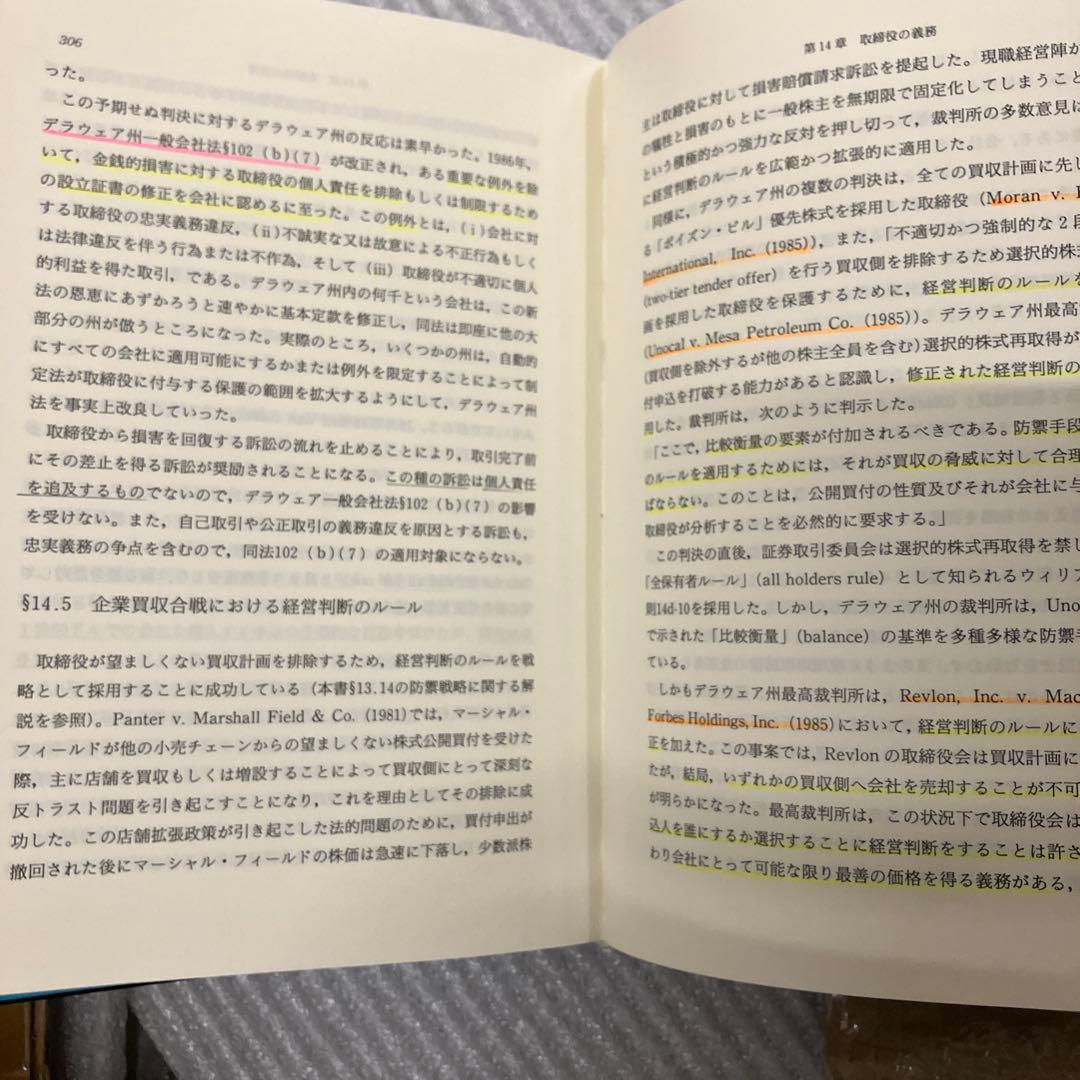 306
った。
この予期せぬ判決に対するデラウェア州の反応は素早かった。1986年,
デラウェア州一般会社法§102（b）(7）が改正され，ある重要な例外を除
いて，金銭的損害に対する取締役の個人責任を排除もしくは制限するため
の設立証書の修正を会社に認めるに至った。この例外とは,（ⅰ）会社に対
する取締役の忠実義務違反,（ⅱ）不誠実な又は故意による不正行為もしく
は法律違反を伴う行為または不作為，そして（ⅲ）取締役が不適切に個人
的利益を得た取引，である。デラウェア州内の何千という会社は，この新
法の恩恵にあずかろうと速やかに基本定款を修正し，同法は即座に他の大
部分の州が倣うところになった。実際のところ，いくつかの州は，自動的
にすべての会社に適用可能にするかまたは例外を限定することによって制
定法が取締役に付与する保護の範囲を拡大するようにして，デラウェア州
法を事実上改良していった。
取締役から損害を回復する訴訟の流れを止めることにより，取引完了前
にその差止を得る訴訟が奨励されることになる。この種の訴訟は個人責任
を追及するものでないので，デラウェア一般会社法§102（b）(7）の影響
を受けない。また，自己取引や公正取引の義務違反を原因とする訴訟も，
忠実義務の争点を含むので，同法102（b）(7）の適用対象にならない。
§14.5　企業買収合戦における経営判断のルール
取締役が望ましくない買収計画を排除するため，経営判断のルールを戦
略として採用することに成功している（本書§13.14の防禦戦略に関する解
説を参照）。Panter v. Marshall Field & Co. (1981)では，マーシャル・
フィールドが他の小売チェーンからの望ましくない株式公開買付を受けた
際，主に店舗を買収もしくは増設することによって買収側にとって深刻な
反トラスト問題を引き起こすことになり，これを理由としてその排除に成
功した。この店舗拡張政策が引き起こした法的問題のために，買付申出が
撤回された後にマーシャル・フィールドの株価は急速に下落し，少数派株
第14章　取締役の義務
主は取締役に対して損害賠償請求訴訟を提起した。現職経営陣が
の犠牲と損害のもとに一般株主を無期限で固定化してしまうこと
という積極的かつ強力な反対を押し切って，裁判所の多数意見は
に経営判断のルールを広範かつ拡張的に適用した。
同様に，デラウェア州の複数の判決は，全ての買収計画に先し
る「ポイズン・ピル」優先株式を採用した取締役（Moran v.
International, Inc. (1985)），また，「不適切かつ強制的な2段
(two-tier tender offer）を行う買収側を排除するため選択的株式
画を採用した取締役を保護するために，経営判断のルールを
(Unocal v. Mesa Petroleum Co. (1985)）。デラウェア州最高
(買収側を除外するが他の株主全員を含む）選択的株式再取得が
付申込を打破する能力があると認識し，修正された経営判断の
用した。裁判所は，次のように判示した。
「ここで，比較衡量の要素が付加されるべきである。防禦手段
のルールを適用するためには，それが買収の脅威に対して合理
ばならない。このことは，公開買付の性質及びそれが会社に与
取締役が分析することを必然的に要求する。」
この判決の直後，証券取引委員会は選択的株式再取得を禁し
「全保有者ルール」(all holders rule）として知られるウィリア
則14d-10を採用した。しかし，デラウェア州の裁判所は，Uno
で示された「比較衡量」(balance）の基準を多種多様な防禦手
ている。
しかもデラウェア州最高裁判所は，Revlon, Inc. v. Mac
Forbes Holdings, Inc. (1985)において，経営判断のルールに
正を加えた。この事案では，Revlonの取締役会は買収計画に
たが，結局，いずれかの買収側へ会社を売却することが不可
が明らかになった。最高裁判所は，この状況下で取締役会は
込人を誰にするか選択することに経営判断をすることは許さ
わり会社にとって可能な限り最善の価格を得る義務がある，